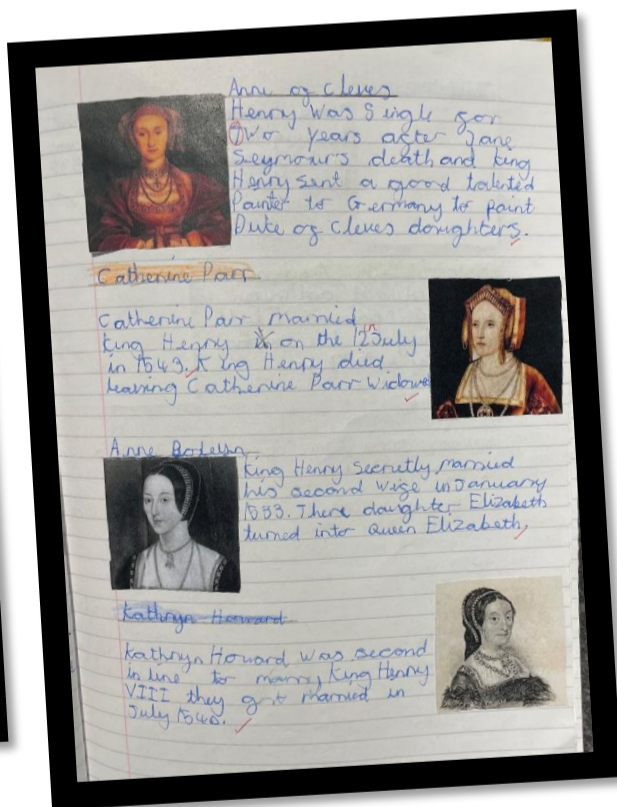 Anne of Cleves
Henry was single for
Two years after Jane
Seymour's death and king
Henry sent a good talented
Painter to Germany to paint
Duke of Cleves daughters.
Catherine Parr
Catherine Parr married
king Henry on the 12 July
in 1543. King Henry died
leaving Catherine Parr widowed
Anne
King Henry secretly married
his second wife in January
1533. There daughter Elizabeth
turned into Queen Elizabeth.
Kathryn Howard
Kathryn Howard was second
in line to marry King Henry
VIII they got married in
July 1540.